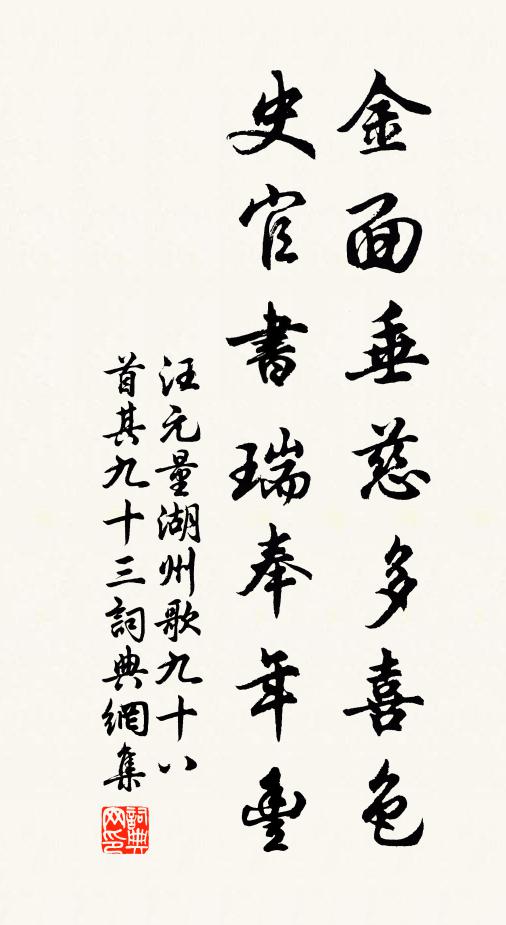 金面垂慈多喜色
史官書瑞奉年豐
汪元量湖州歌九十八
首其九十三詞典網集
詞典
网印